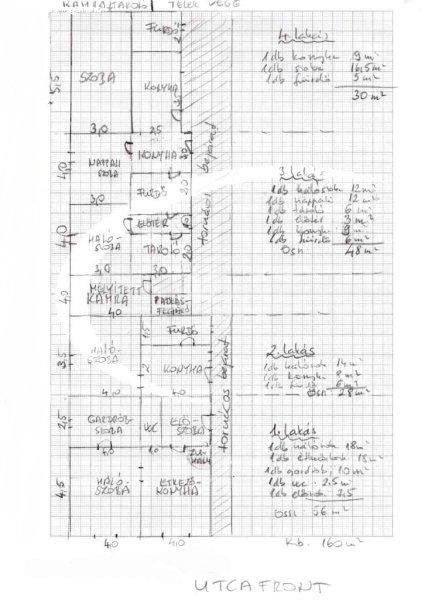 KAMRA, TÁROLÓ TELEK VÉGE
FÜRDŐ
SZOBA
KONYHA
5,5
3,0 2,5
4,0
NAPPALI
SZOBA
KONYHA
FÜRDŐ
2,0
3,0
ELŐTÉR
4,0
HÁLÓ-
SZOBA
TÁROLÓ
2,0
3,0 3,0
MÉLYÍTETT
KAMRA
4,0
4,0
PADLÁS-
FELJÁRÓ
FÜRDŐ
1,5
3,5
HÁLÓ-
SZOBA
KONYHA
2
4,0 4,0
2,5
GARDRÓB-
SZOBA
WC
ELŐ-
SZOBA
4,0 1,0
4,5
HÁLÓ-
SZOBA
ÉTKEZŐ-
KONYHA
4,0 4,0
tornácos bejárat
tornácos bejárat
4. lakás
1 db konyha 9 m²
1 db szoba 16,5 m²
1 db fürdő 5 m²
30 m²
3. lakás
1 db hálószoba 12 m²
1 db nappali 12 m²
1 db tároló 6 m²
1 db előtér 3 m²
1 db konyha m²
1 db fürdő 6 m²
Össz 48 m²
2. lakás
1 db hálószoba 14 m²
1 db konyha 8 m²
1 db fürdő 6 m²
Össz 28 m²
1. lakás
1 db hálószoba 18 m²
1 db étkezőkonyha 18 m²
1 db gardrób 10 m²
1 db wc. 2.5 m²
1 db előszoba 7,5
Össz: 56 m²
Kb. 160 m²
UTCAFRONT